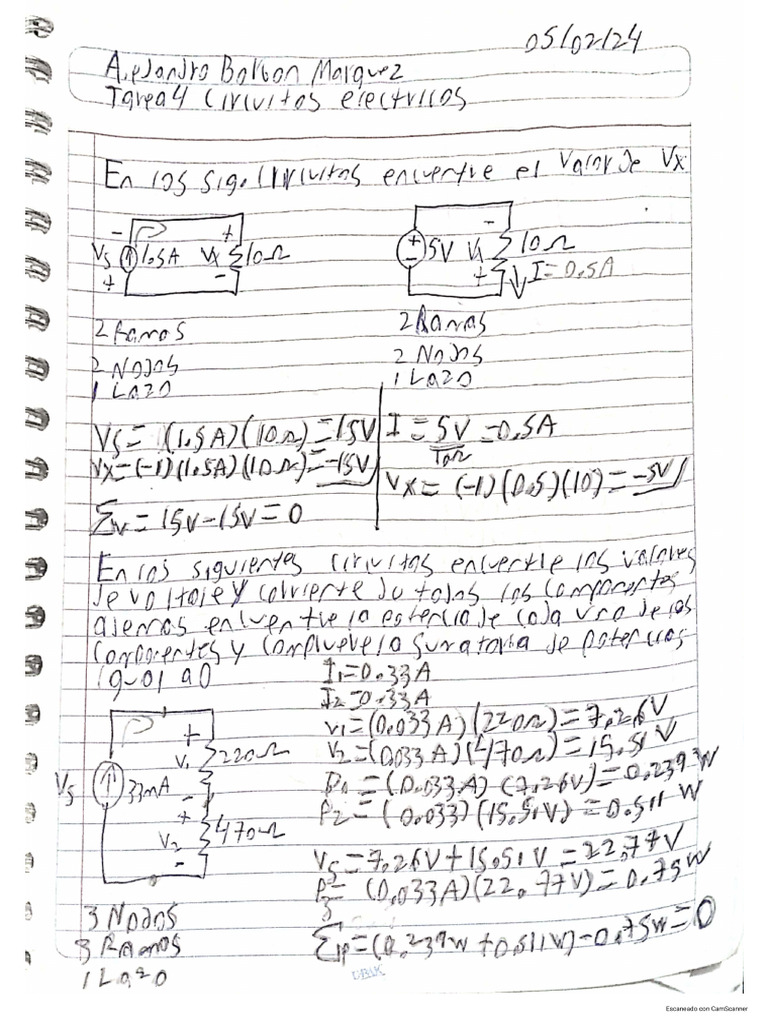 05/02/24
Alejandro Bolson Marquez
Tarea 4 Circuitos electricos
En los sig. circuitos encuentre el valor de Vx
- + -
Vs 1.5A Vx 10Ω
+ -
+ - 5V Vx 10Ω
+ I = 0.5A
2 Ramas
2 Nodos
1 Lazo
2 Ramas
2 Nodos
1 Lazo
Vs = (1.5A)(10Ω) = 15V
Vx = (-1)(1.5A)(10Ω) = -15V
Σv = 15V - 15V = 0
I = 5V/10Ω = 0.5A
Vx = (-1)(0.5)(10) = -5V
En los siguientes circuitos encuentre los valores
de voltaje y corriente de todos los componentes
ademas encuentre la potencia de cada uno de los
componentes y compruebe la sumatoria de potencias
igual a 0
Vs 33mA
+ V1 220Ω -
+ V2 470Ω -
3 Nodos
3 Ramas
1 Lazo
I1 = 0.33A
I2 = 0.33A
V1 = (0.033A)(220Ω) = 7.26V
V2 = (0.033A)(470Ω) = 15.51V
P1 = (0.033A)(7.26V) = 0.239W
P2 = (0.033)(15.51V) = 0.511W
Vs = 7.26V + 15.51V = 22.77V
P3 = (0.033A)(22.77V) = 0.75W
Σp = (0.239W + 0.511W) - 0.75W = 0
Escaneado con CamScanner